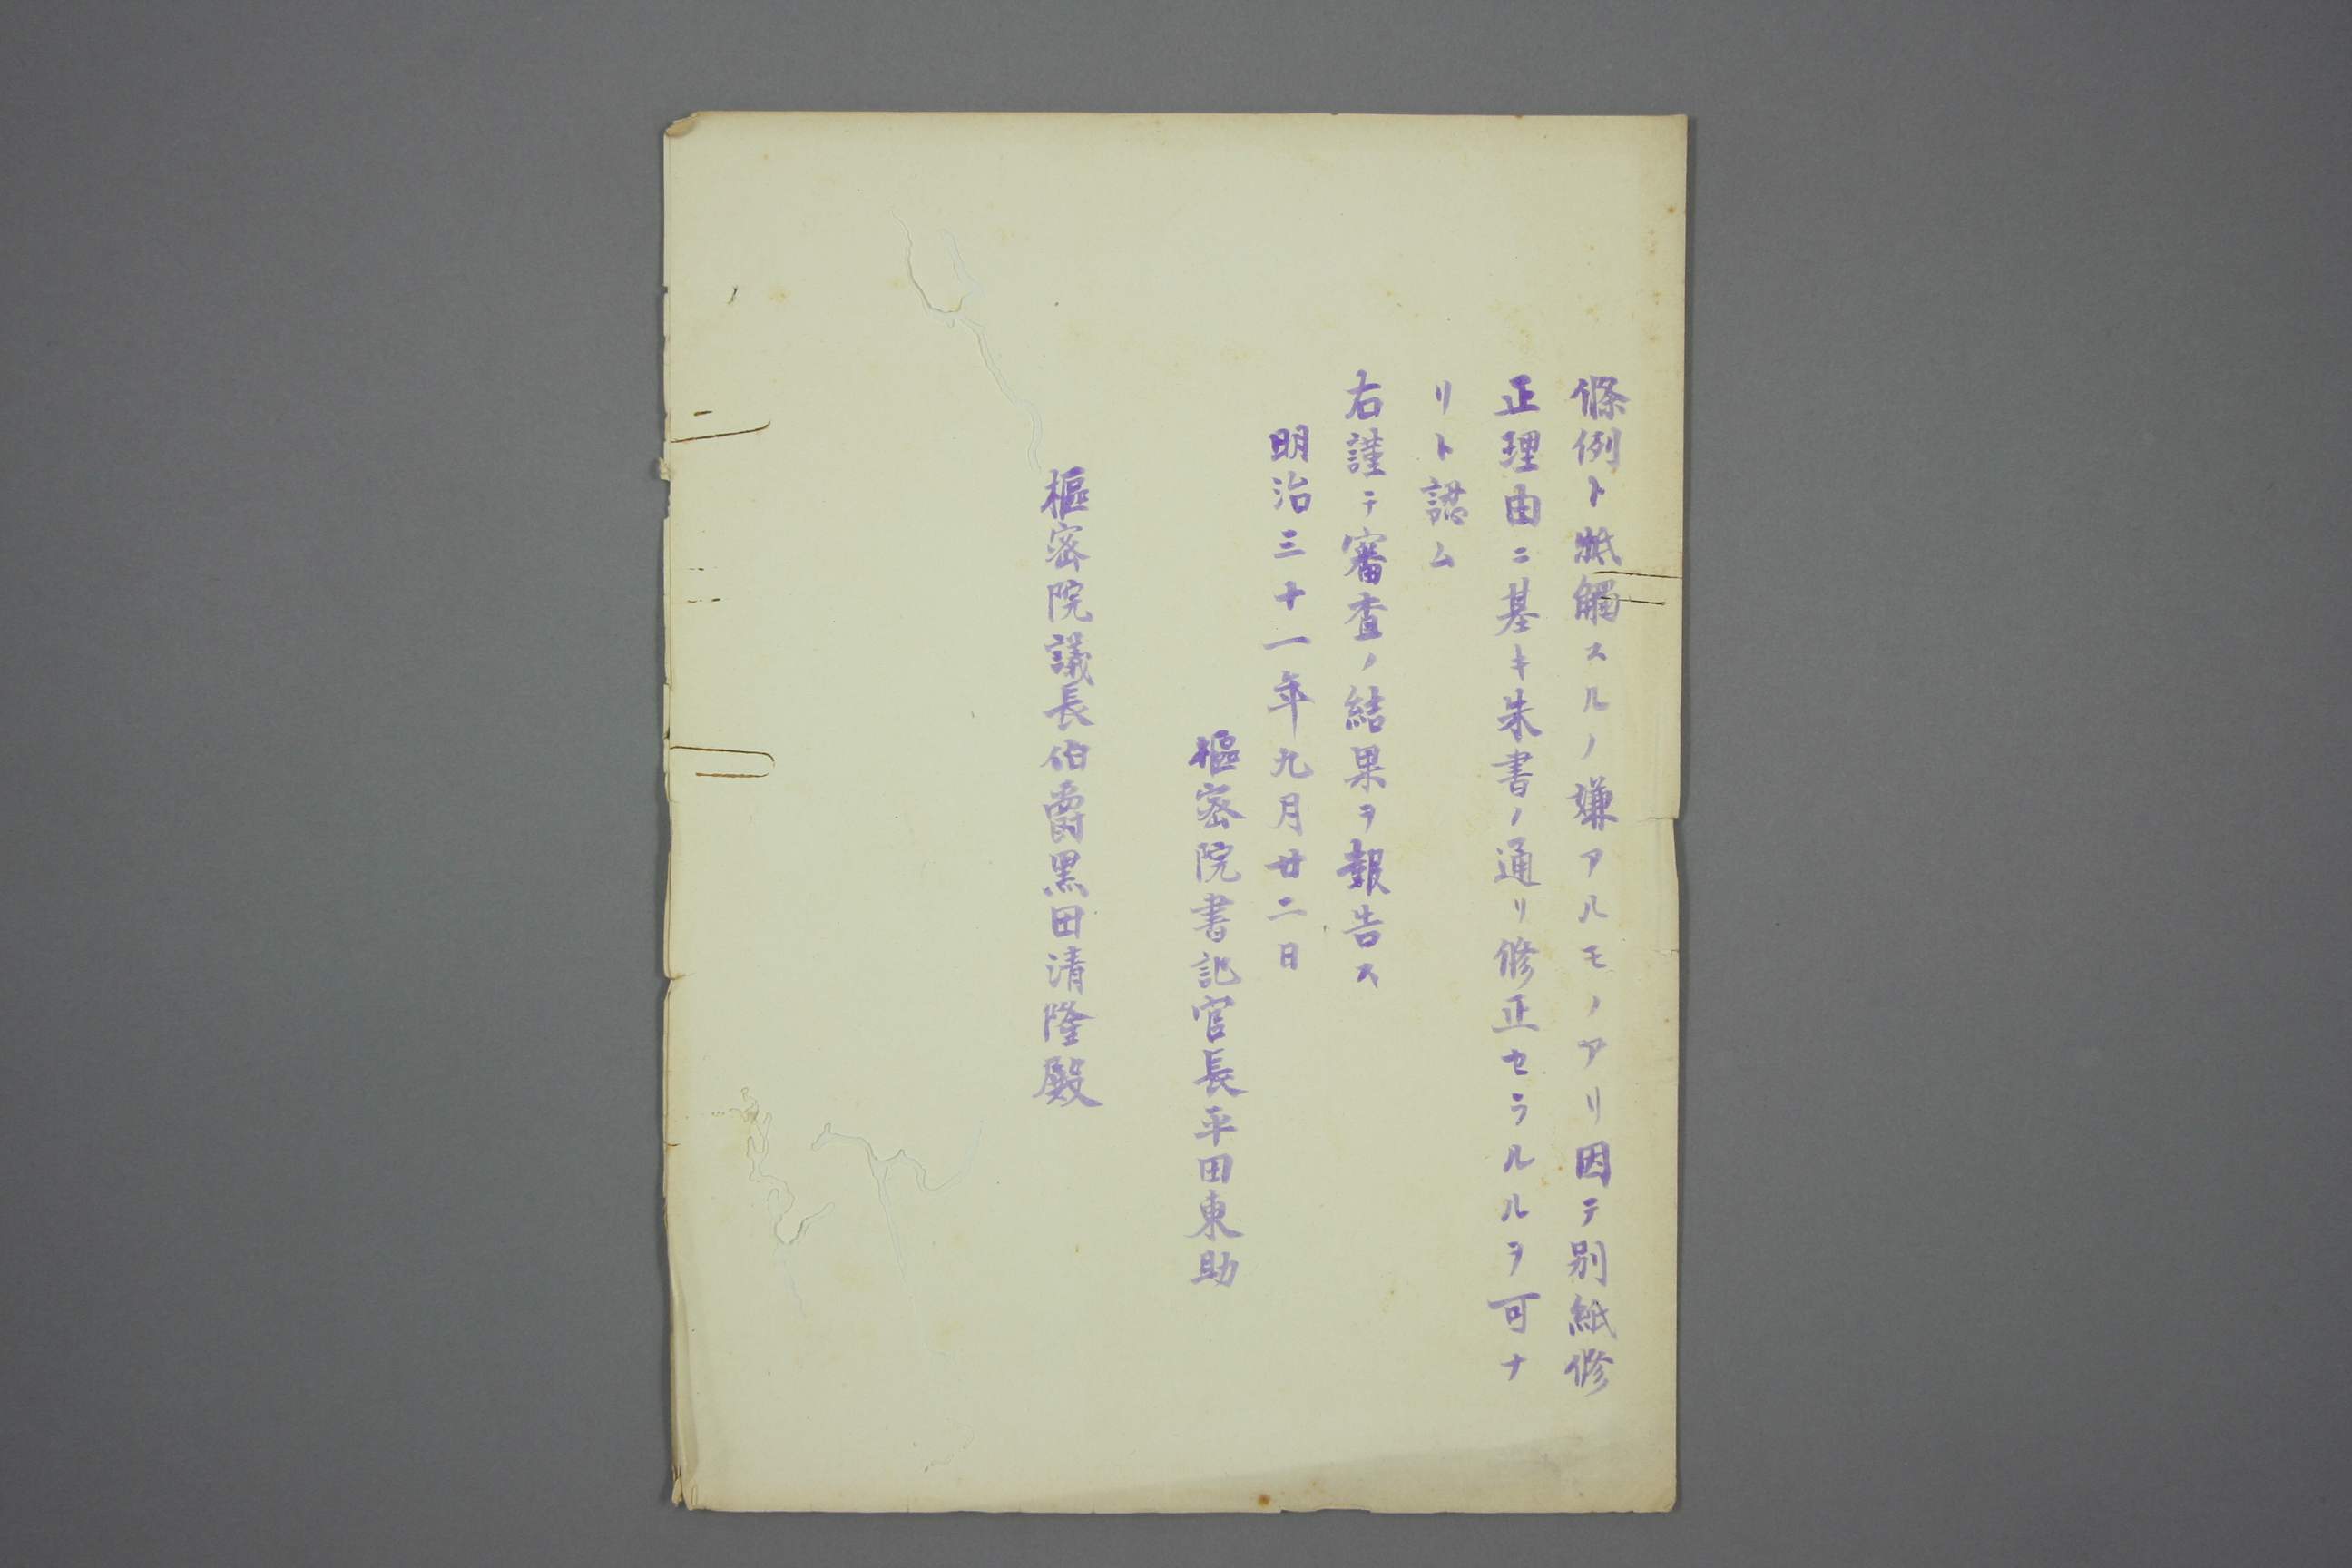 條例ト牴觸スルノ嫌アルモノアリ因テ別紙修
正理由ニ基キ朱書ノ通リ修正セラルルヲ可ナ
リト認ム
右謹テ審査ノ結果ヲ報告ス
明治三十一年九月廿二日
樞密院書記官長平田東助
樞密院議長伯爵黒田清隆殿